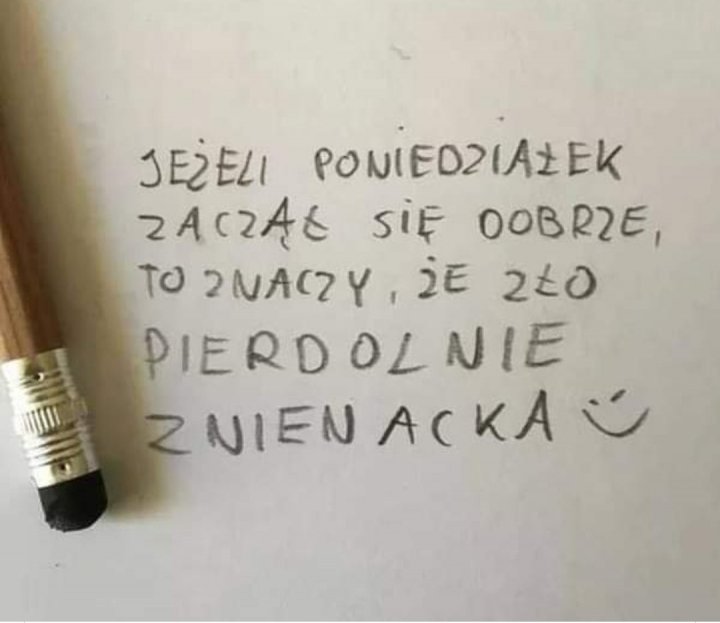 JEŻELI PONIEDZIAŁEK
ZACZĄŁ SIĘ DOBRZE,
TO ZNACZY, ŻE ZŁO
PIERDOLNIE
ZNIENACKA :)